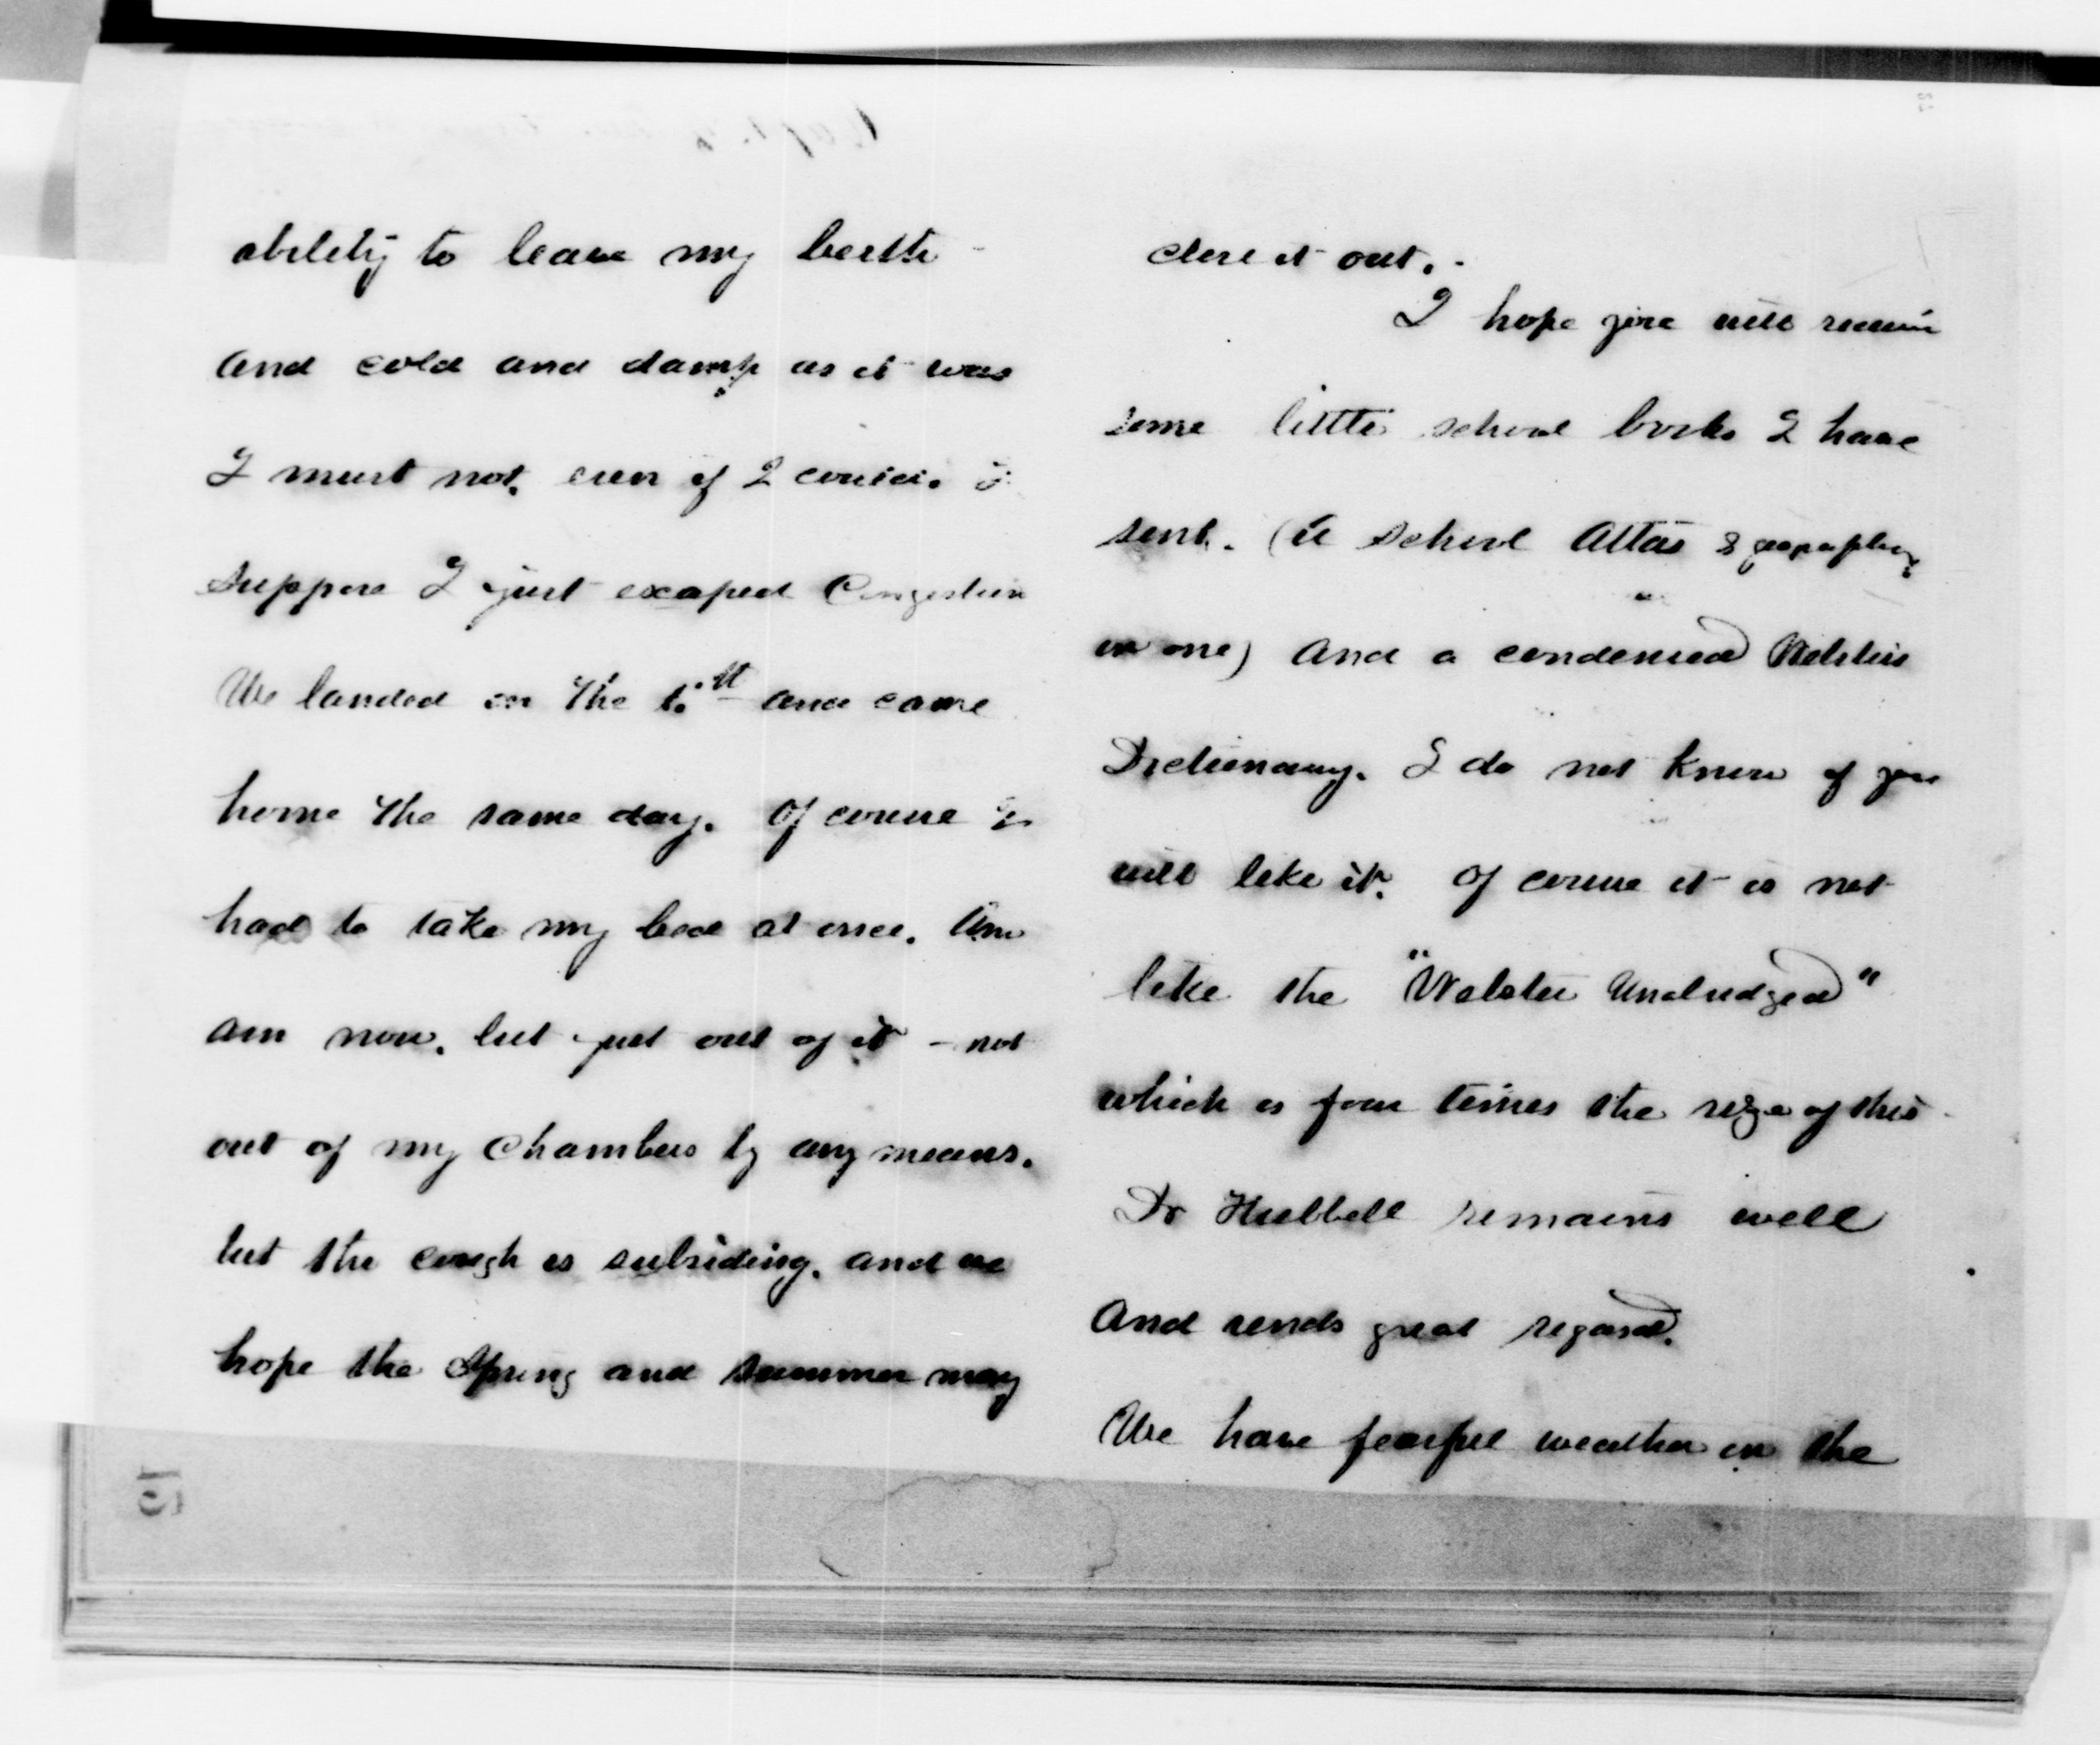 ability to leave my berth -
and cold and damp as it was
I must not, even if I could. I
suppose I just escaped Congestion
We landed on the 1st and came
home the same day. Of course I
had to take my bed at once. Am
am now, but just out of it - not
out of my chambers by any means.
but the cough is subsiding, and we
hope the Spring and summer may
clear it out. -
I hope you will receive
some little school books I have
sent. (a school Atlas & geography
in one) and a condensed Websters
Dictionary. I do not know if you
will like it. Of course it is not
like the "Webster Unabridged"
which is four times the size of this
Dr Hubbell remains well
and sends great regard.
We have fearful weather in the
15